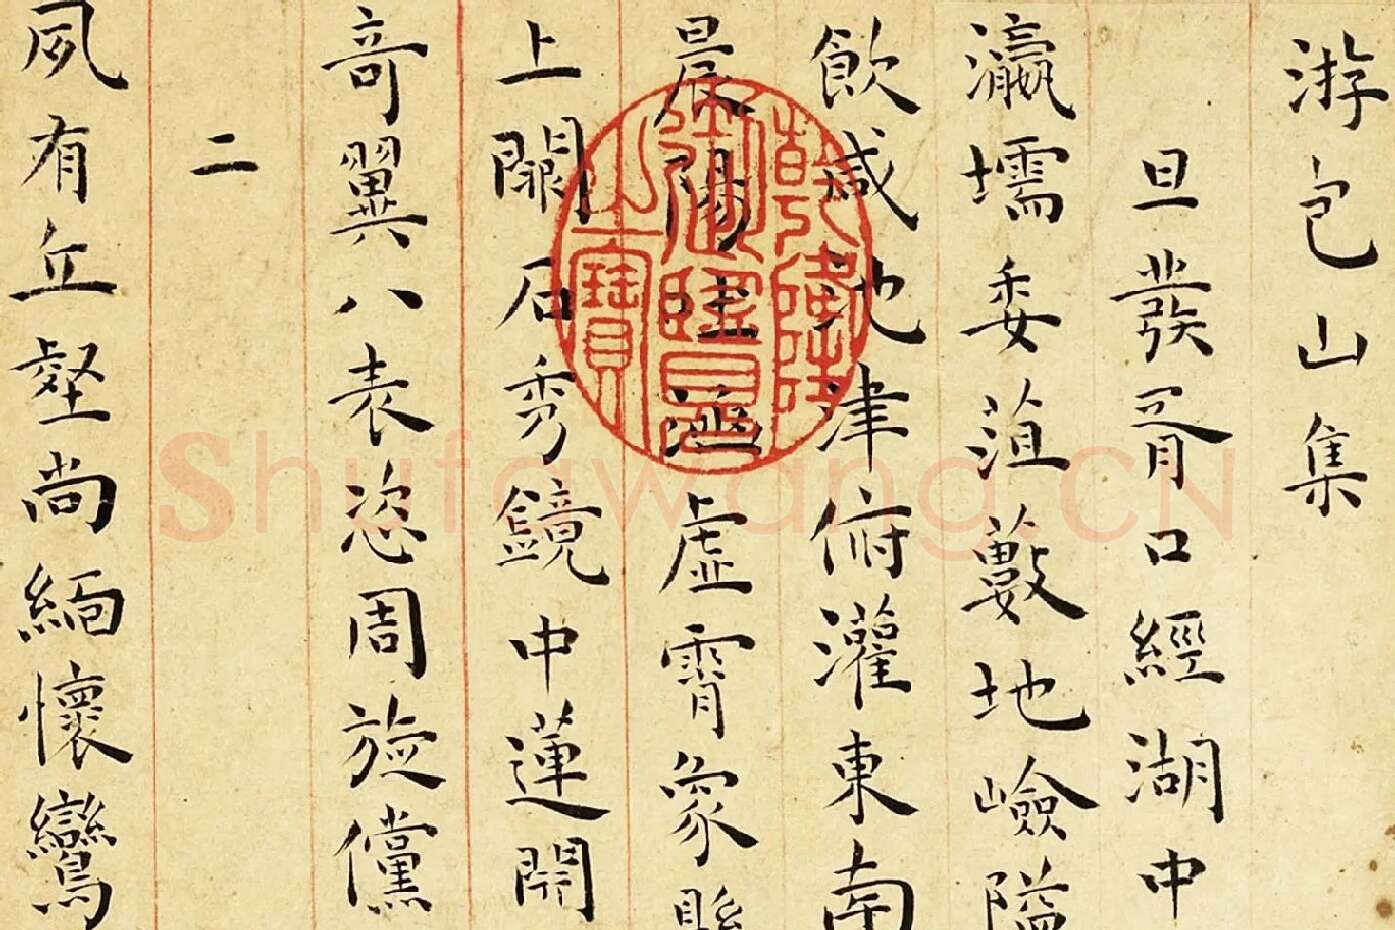 游包山集
旦發胥口經湖中
瀛壖委菹藪地嶮隘
飲咸池津俯灌東南
晨陽 涵虛霄象縣
上闚石秀鏡中蓮開
奇翼八表恣周旋儻
二
夙有丘壑尚緬懷鸞
乾隆御覽之寶
Shufawang.CN